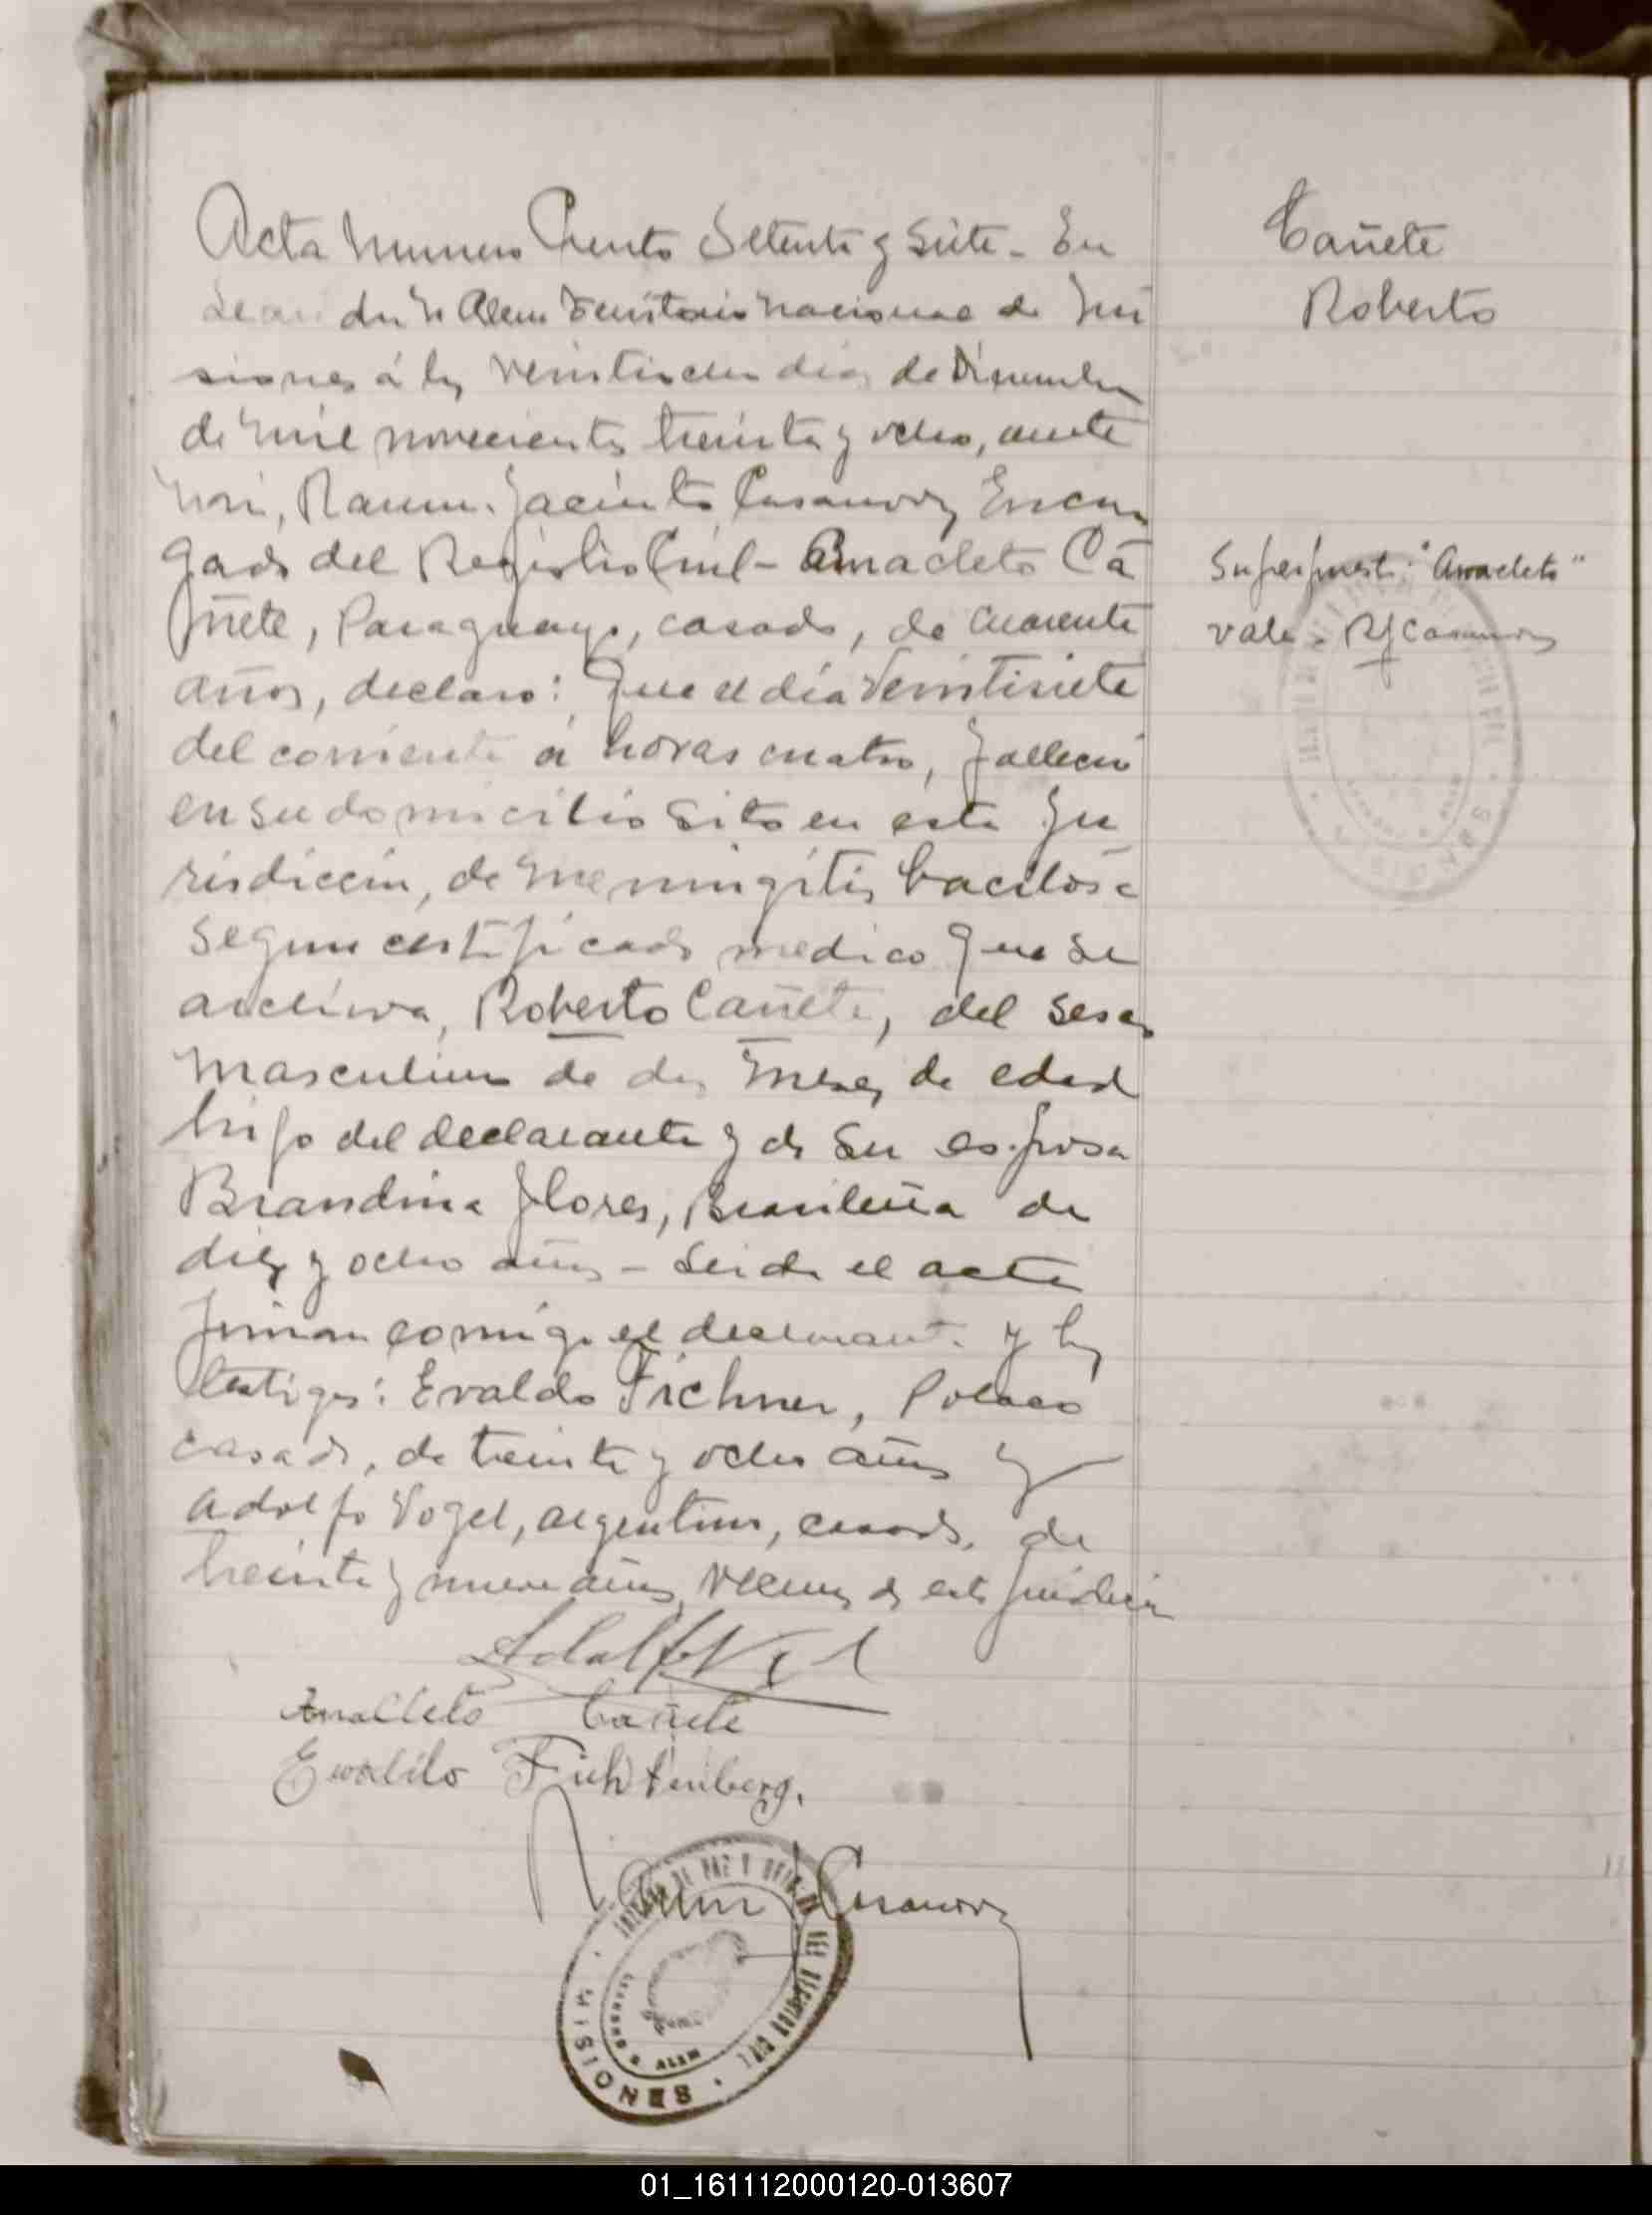 Acta Numero Ciento Setenta y Siete - En
Leandro N Alem Territorio Nacional de Mi
siones á los días de Diciembre
de mil novecientos treinta y ocho, ante
mi, Ramon Jacinto Casanova, Encar
gado del Registro Civil - Anacleto Ca
ñete, Paraguayo, casado, de cuarenta
años, declaro: Que el día Veintisiete
del corriente á horas cuatro, fallecio
en su domicilio sito en esta Ju
risdiccion, de meningitis bacilosa
segun certificado medico que se
archiva, Roberto Cañete, del sexo
masculino de dos meses de edad
hijo del declarante y de su esposa
Brandina Flores, Brasileña de
diez y ocho años - Leida el acta
firman comigo el declarante y los
testigos: Evaldo Fichner, Polaco
casado, de treinta y ocho años y
Adolfo Vogel, argentino, casado, de
treinta y nueve años, vecinos de esta jurisdiccion
Adolfo Vogel
Anacleto Cañete
Ewaldo Fichtenberg.
Ramon J Casanova
MISIONES
ALEM
Cañete
Roberto
Superpuesto: "Anacleto"
vale - RJCasanova
01_161112000120-013607